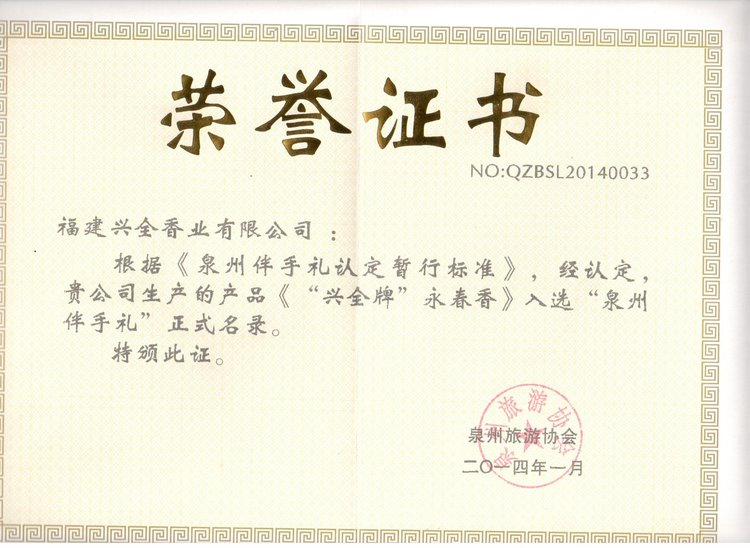 荣誉证书
NO:QZBSL20140033
福建兴全香业有限公司：
根据《泉州伴手礼认定暂行标准》，经认定，
贵公司生产的产品《“兴全牌”永春香》入选“泉州
伴手礼”正式名录。
特颁此证。
泉州旅游协会
泉州旅游协会
二〇一四年一月